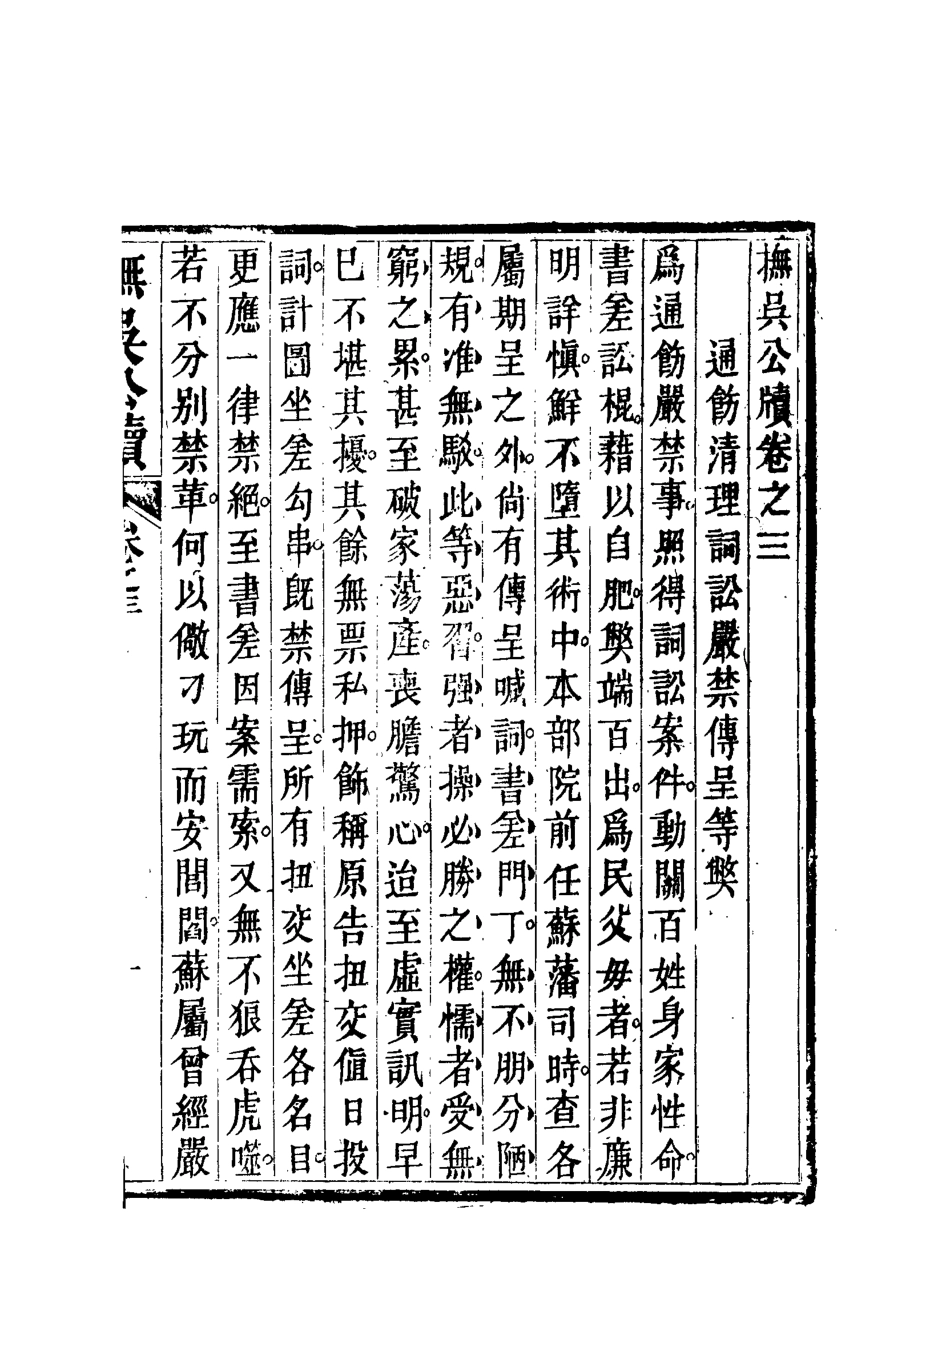 撫吳公牘卷之三
通飭清理詞訟嚴禁傳呈等獘
爲通飭嚴禁事照得詞訟案件動關百姓身家性命
書差訟棍藉以自肥獘端百出爲民父毋者若非廉
明詳愼鮮不墮其術中本部院前任蘇藩司時查各
屬期呈之外尙有傳呈喊詞書差門丁無不朋分陋
規有准無駁此等惡習强者操必勝之權懦者受無
窮之累甚至破家蕩產喪膽驚心迨至虛實訊明早
已不堪其擾其餘無票私押飾稱原告扭交値日投
詞計圖坐差勾串旣禁傳呈所有扭交坐差各名目
更應一律禁絕至書差因案需索又無不狼吞虎噬
若不分别禁革何以儆刁玩而安閭閻蘇屬曾經嚴
撫吳公牘 卷之三 一